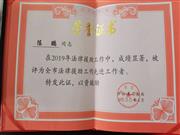 荣誉证书
陈鹏 同志
在2019年法律援助工作中，成绩显著，被
评为全市法律援助工作先进工作者。
特发此证，以资鼓励